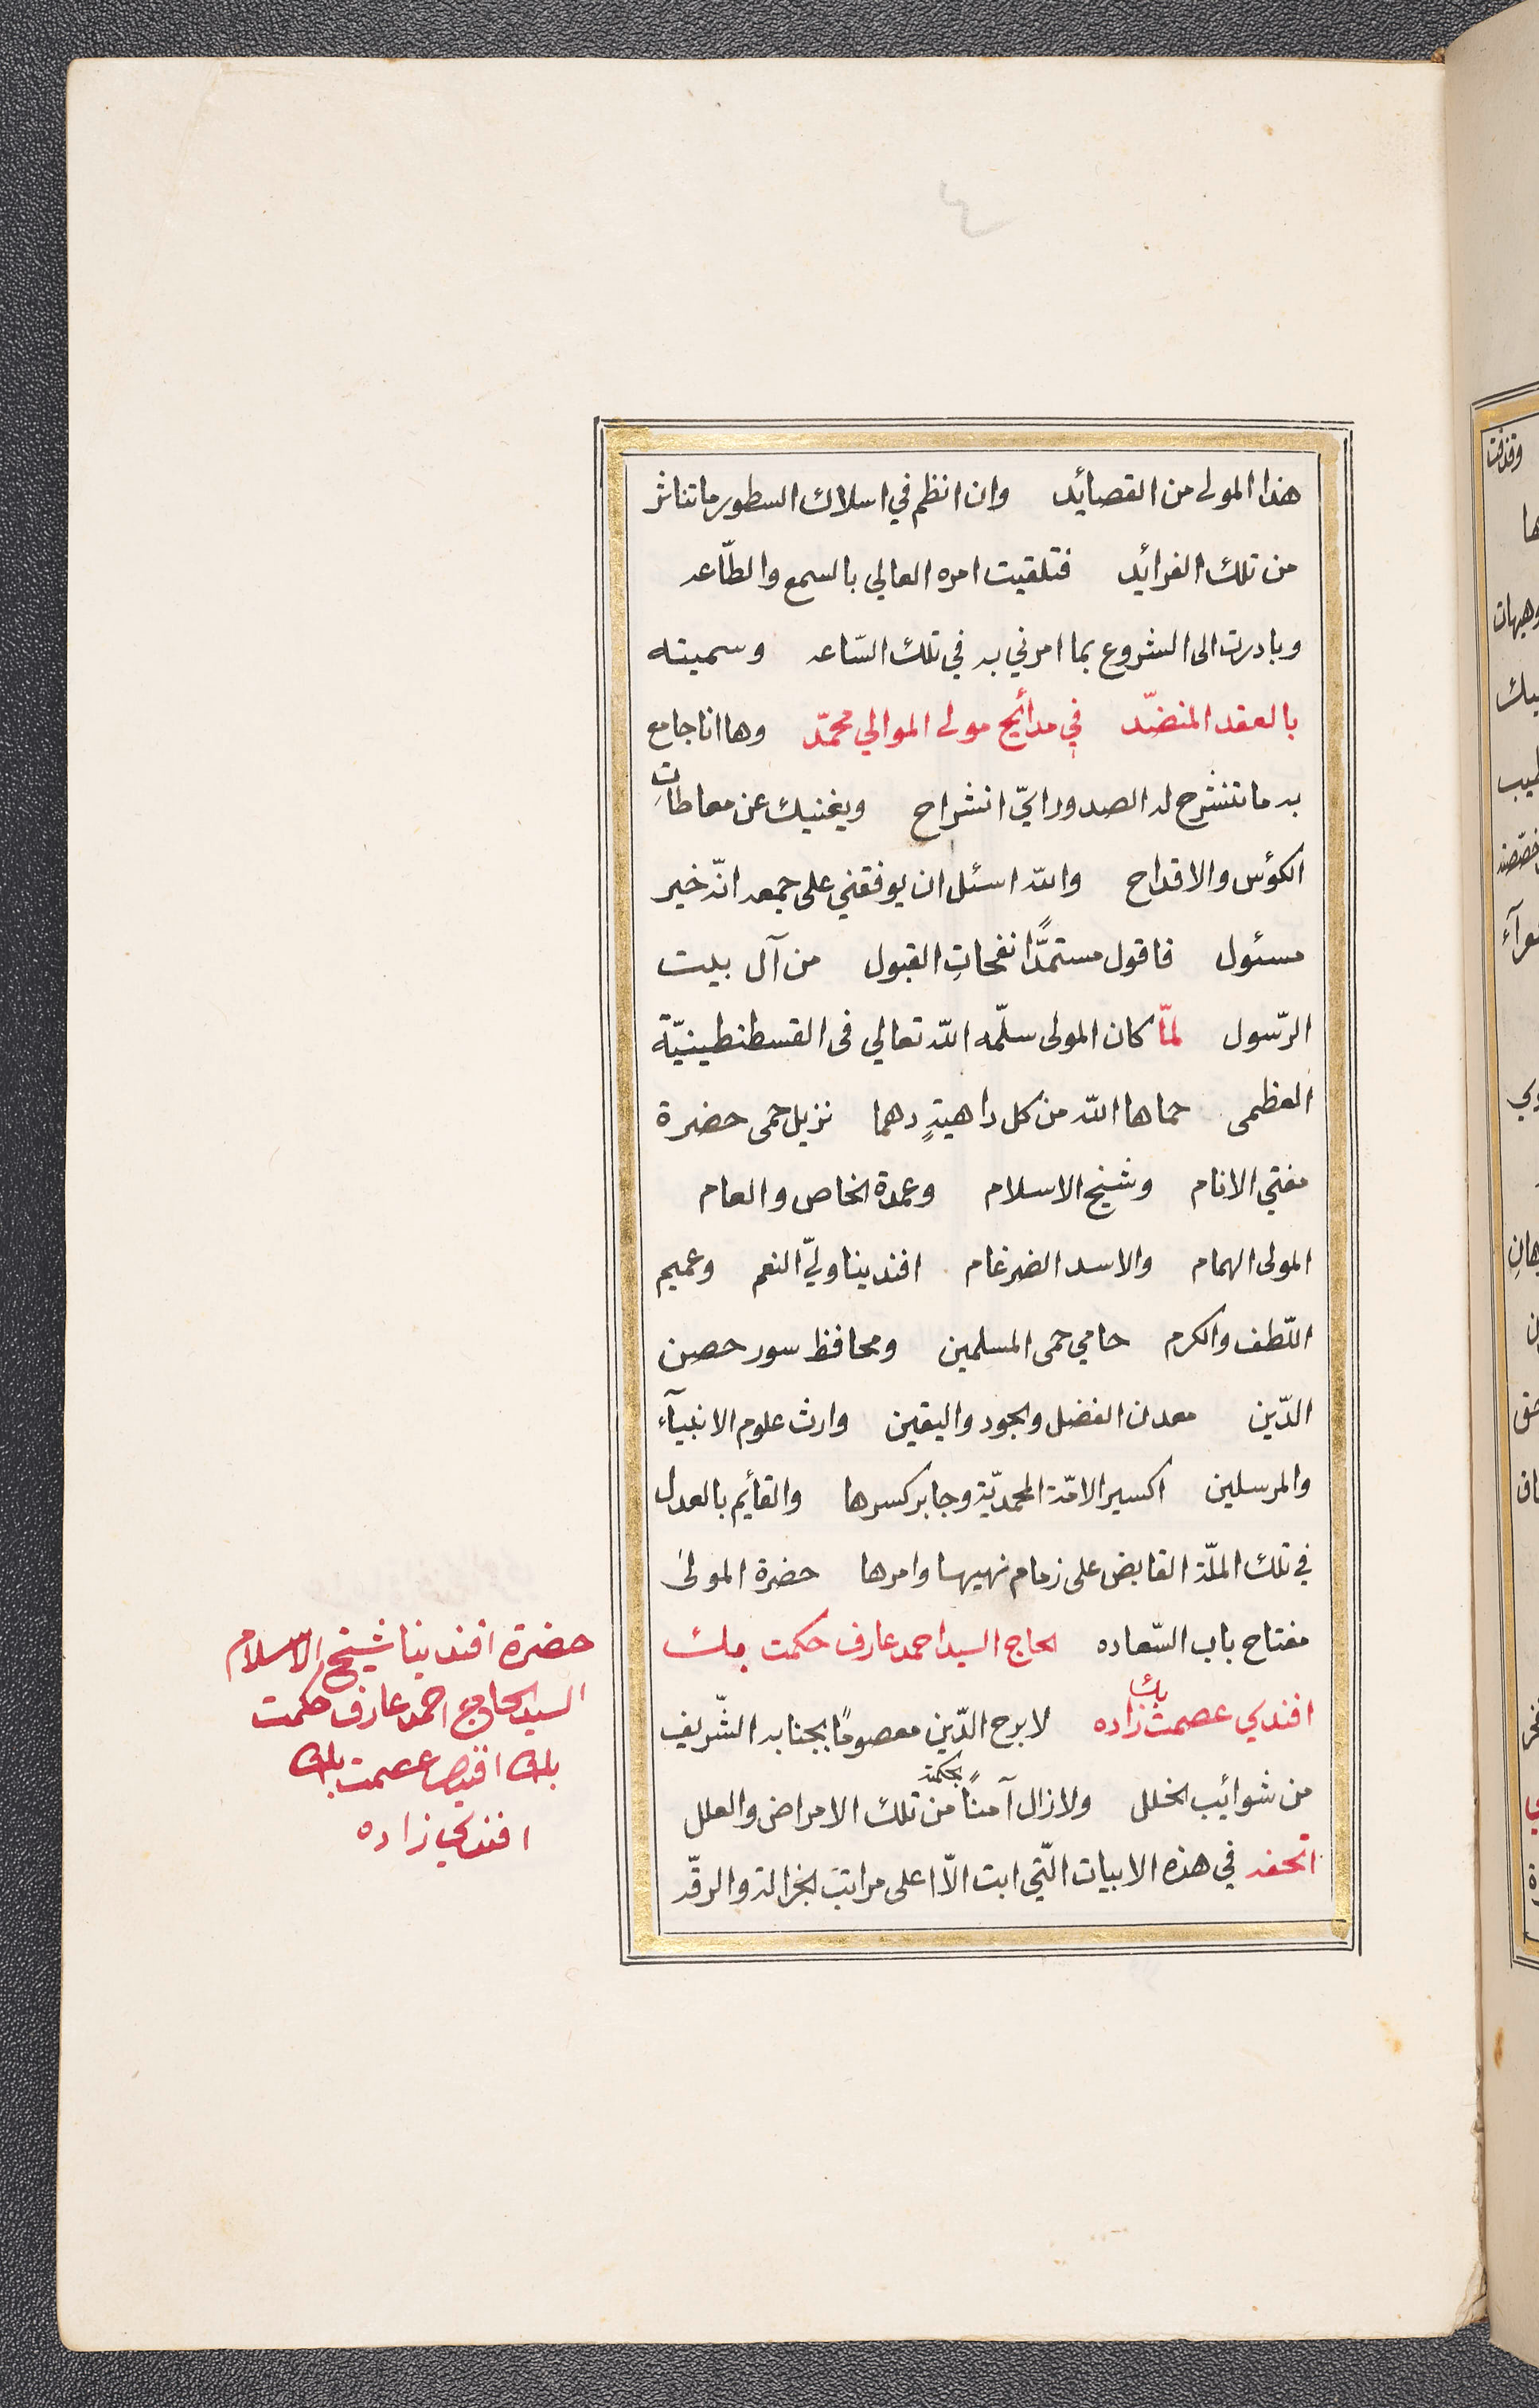 هذا المولى من القصائد وان انظم في اسلاك السطور ما تناثر
من تلك الفرائد فتلقيت امره العالي بالسمع والطّاعه
وبادرت الى الشروع بما امرني به في تلك السّاعه وسميته
بالعقد المنضّد في مدائح مولى الموالي محمّد وها انا جامع
به ما تنشرح له الصدور ايّ انشراح ويغنيك عن معاطاتِ
الكؤس والاقداح والله اسئل ان يوفقني على جمعه انّه خير
مسئول فاقول مستمدًّا نفحاتِ القبول من آل بيت
الرّسول لمّا كان المولى سلّمه الله تعالى فى القسطنطينيّة
العظمى حماها الله من كل داهيةٍ دهما نزيل حمى حضرة
مفتي الانام وشيخ الاسلام وعمدة الخاص والعام
المولى الهمام والاسد الضرغام افندينا وليّ النعم وعميم
اللّطف والكرم حامي حمى المسلمين ومحافظ سور حصن
الدّين معدن الفضل والجود واليقين وارث علوم الانبيآء
والمرسلين اكسير الامّة المحمديّة وجابر كسرها والقائم بالعدل
في تلك الملّة القابض على زمام نهيها وامرها حضرة المولى
مفتاح باب السّعاده الحاج السيد احمد عارف حكمت بك
افندي عصمت بك زاده لا برح الدّين معصومًا بجنابه الشّريف
من شوائب الخلل ولا زال آمنًا بحكمته من تلك الامراض والعلل
اتحفه في هذه الابيات الّتي ابت الّا اعلى مراتب الجزالة والرقّه
حضرة افندينا شيخ الاسلام
السيد الحاج احمد عارف حكمت
بك افندي عصمت بك
افندي زاده
وقذفت
ها
وهيهات